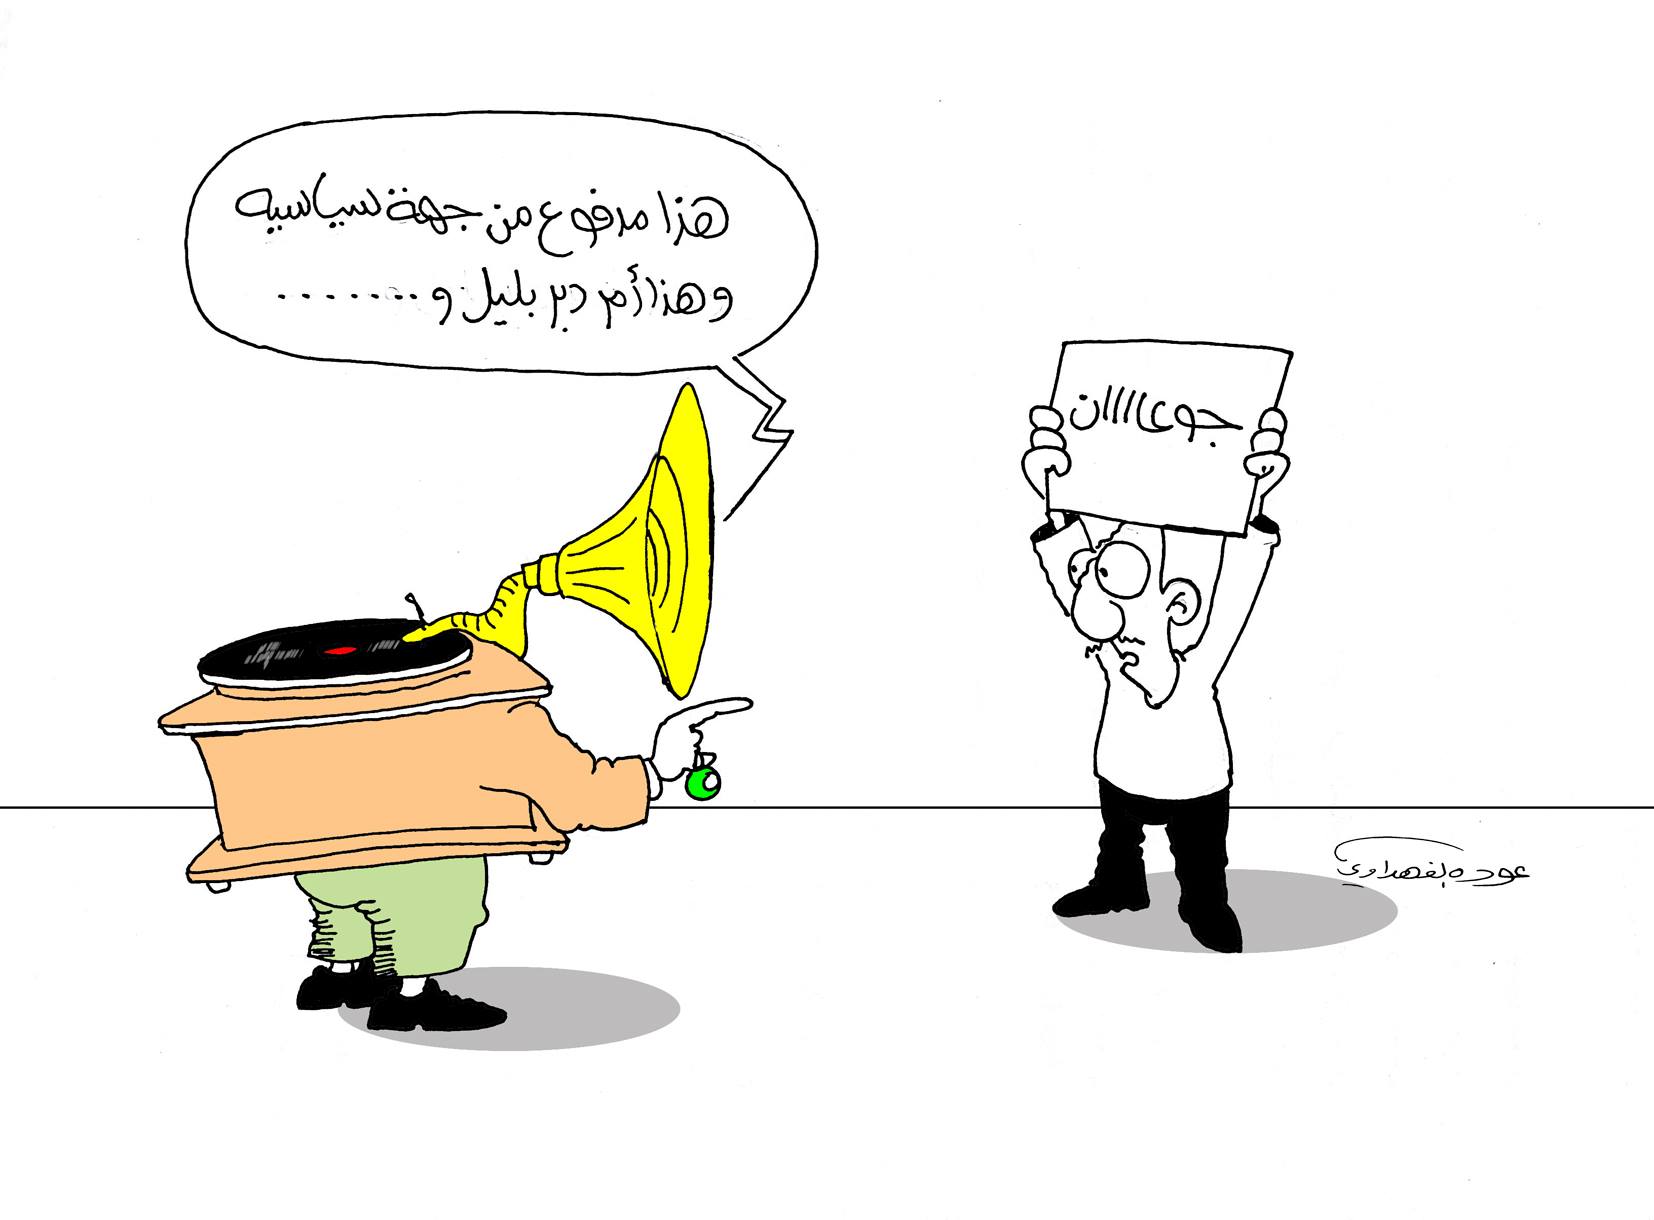 هذا مدفوع من جهة سياسيه
وهذا أمر دبر بليل و.......
جوعاااان
عوده الفهداوي